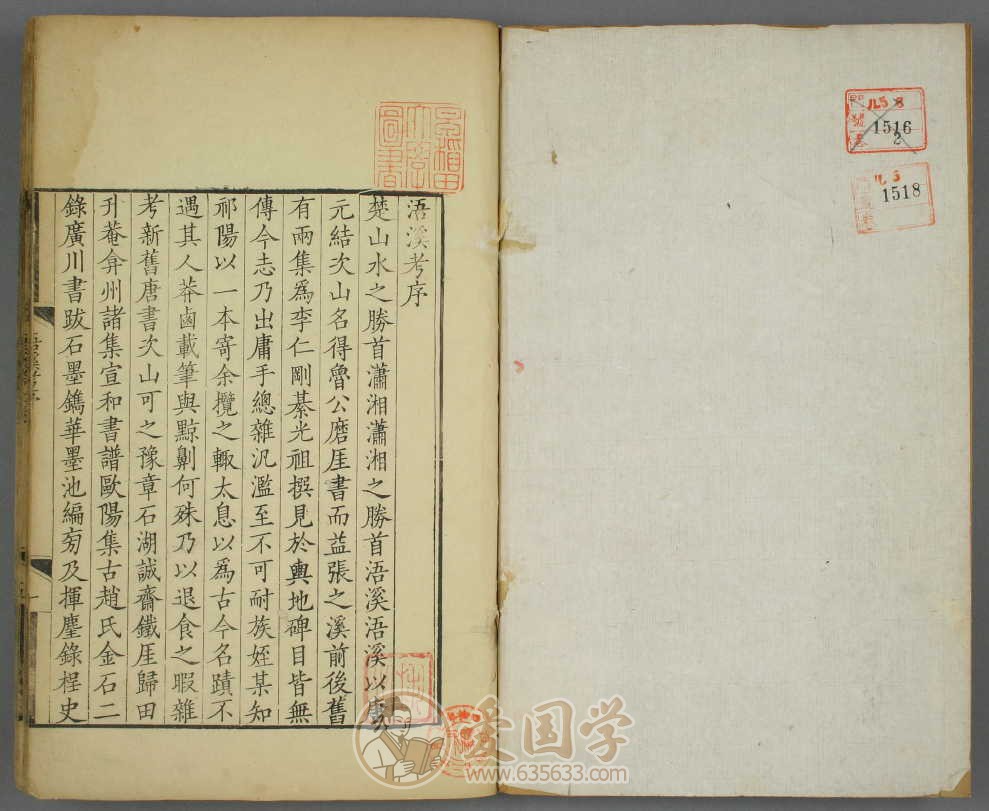 浯溪考序
楚山水之勝首瀟湘瀟湘之勝首浯溪浯溪以唐
元結次山名得魯公磨厓書而益張之溪前後舊
有兩集爲李仁剛綦光祖撰見於輿地碑目皆無
傳今志乃出庸手總雜汎濫至不可耐族姪某知
祁陽以一本寄余攬之輒太息以爲古今名蹟不
遇其人莽鹵載筆與黥劓何殊乃以退食之暇雜
考新舊唐書次山可之豫章石湖誠齋鐵厓歸田
升菴弇州諸集宣和書譜歐陽集古趙氏金石二
錄廣川書跋石墨鐫華墨池編旁及揮麈錄桯史
早稻田
大學
圖書
1516
2
1518
爱国学
www.635633.com